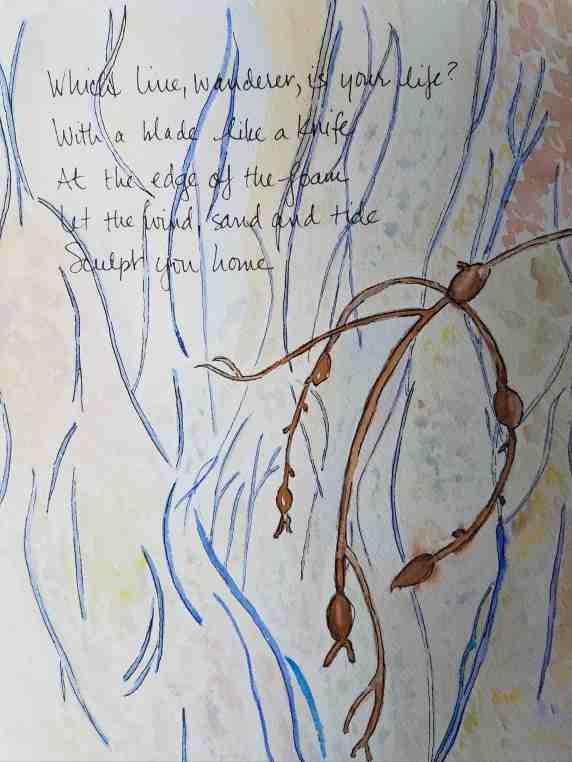 Which line, wanderer, is your life?
With a blade like a knife
At the edge of the foam
Let the wind, sand and tide
Sculpt you home